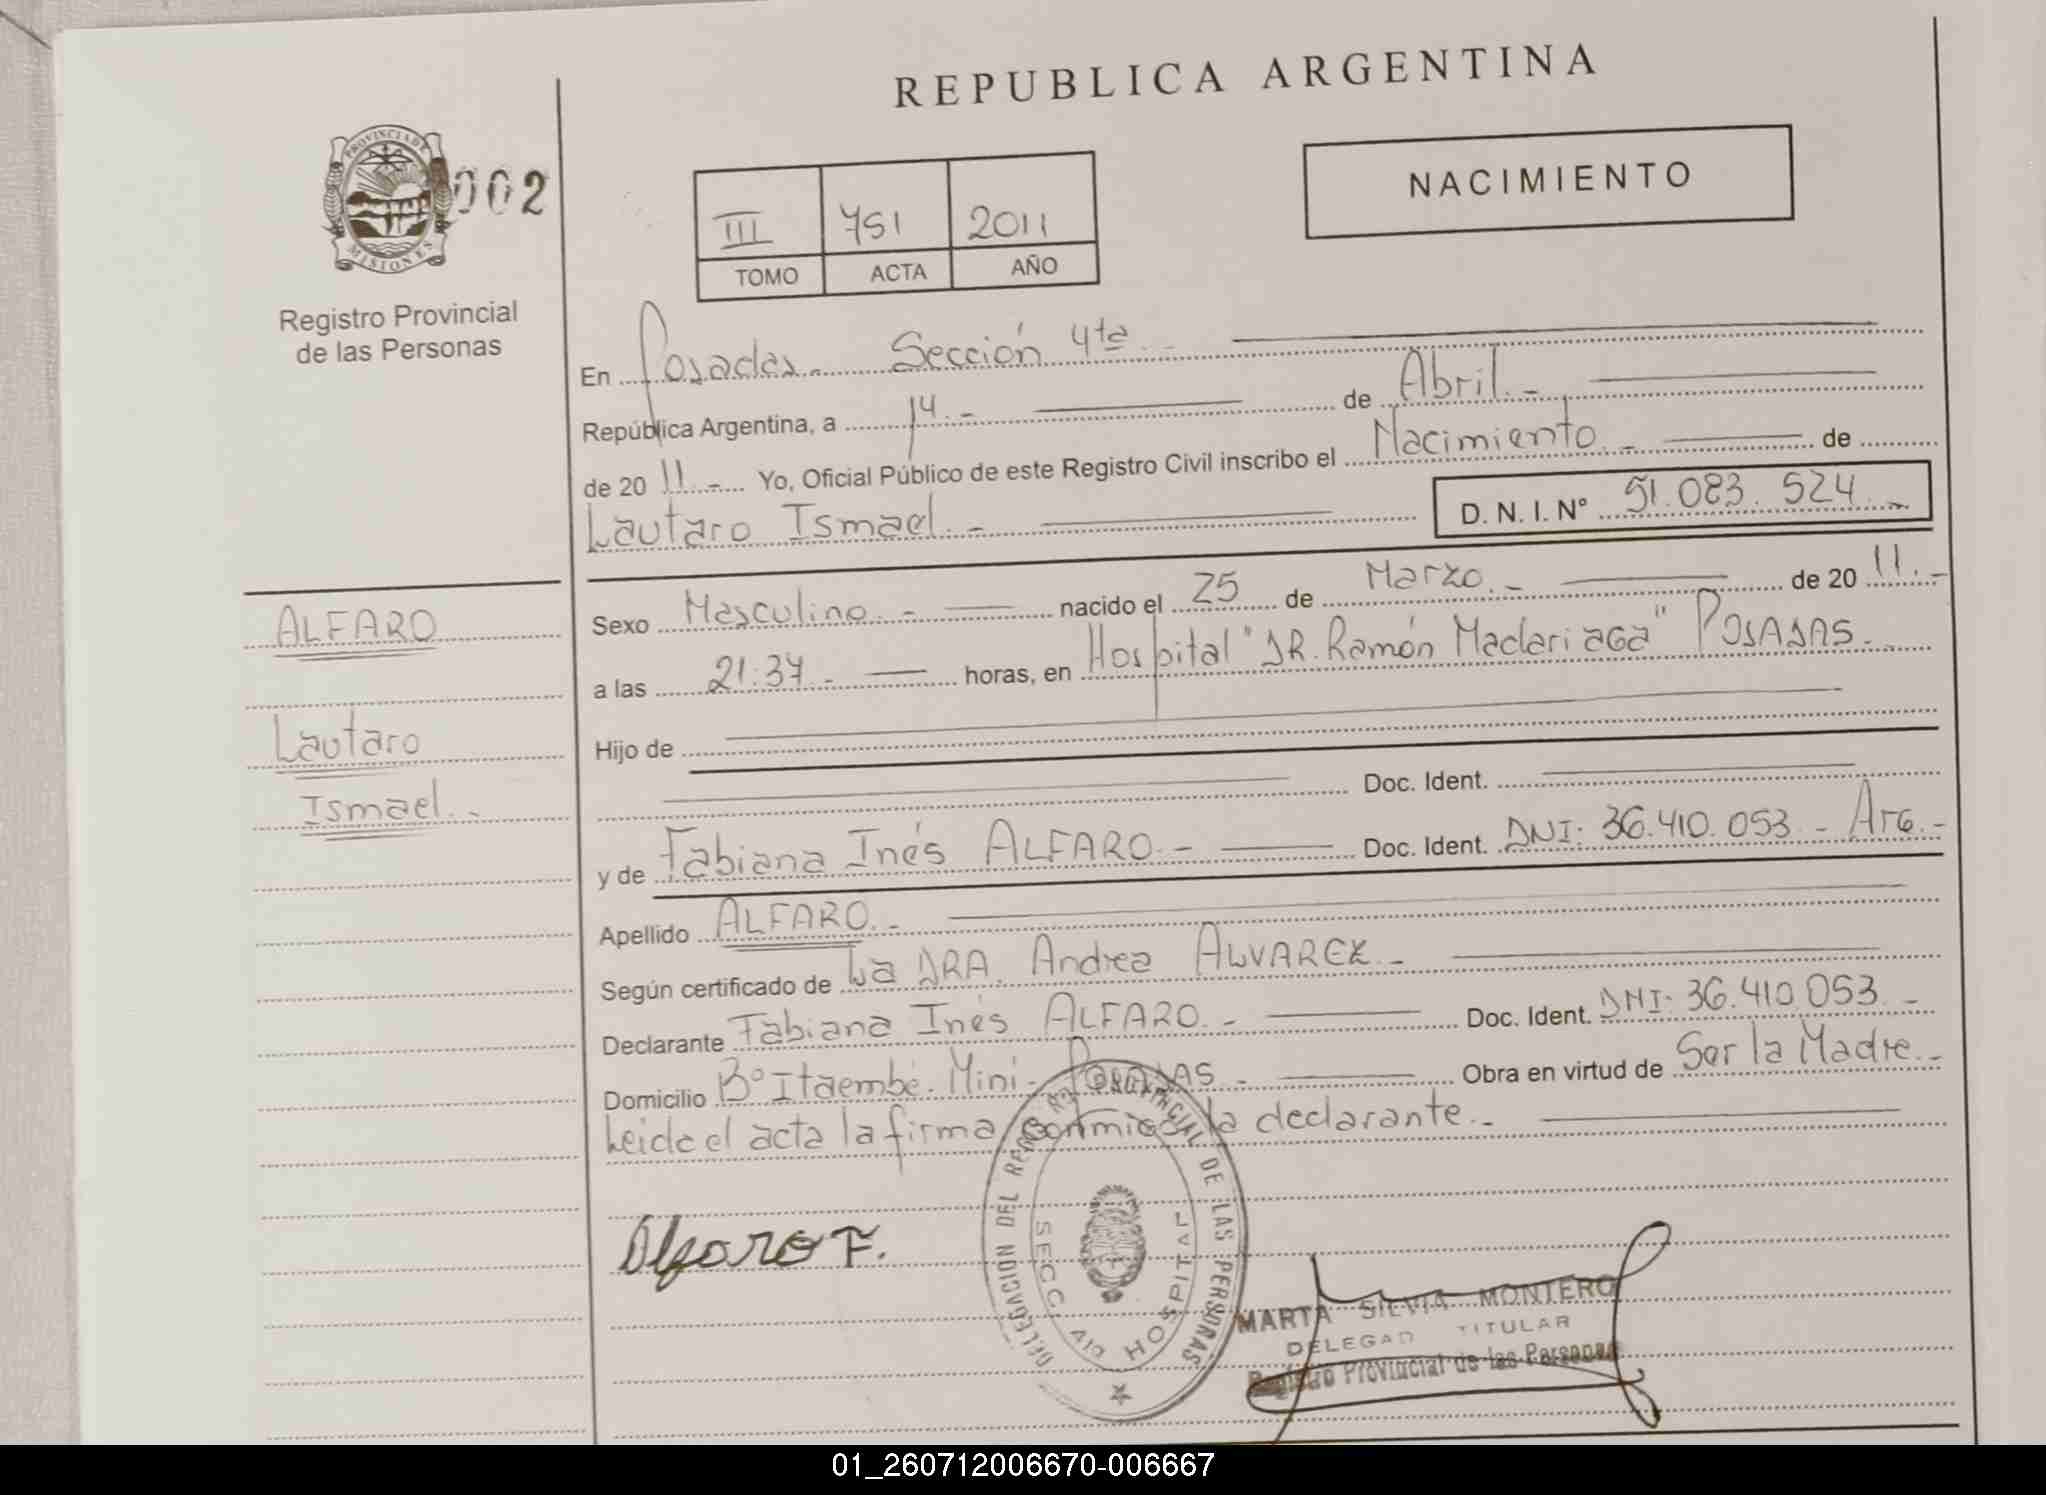 REPUBLICA ARGENTINA
PROVINCIA DE MISIONES
002
Registro Provincial
de las Personas
NACIMIENTO
III 751 2011
TOMO ACTA AÑO
En Posadas.- Sección 4ta.-
República Argentina, a 14.- de Abril.-
de 20 11.- Yo, Oficial Público de este Registro Civil inscribo el Nacimiento.- de
Lautaro Ismael.- D. N. I. Nº 51.083.524.-
ALFARO
Lautaro
Ismael.-
Sexo Masculino.- nacido el 25 de Marzo.- de 20 11.-
a las 21:37.- horas, en Hospital "DR. Ramón Madariaga" POSADAS.-
Hijo de
Doc. Ident.
y de Fabiana Inés ALFARO.- Doc. Ident. DNI: 36.410.053.- Arg.-
Apellido ALFARO.-
Según certificado de La DRA. Andrea ALVAREZ.-
Declarante Fabiana Inés ALFARO.- Doc. Ident. DNI: 36.410.053.-
Domicilio Bº Itaembé Mini- POSADAS.- Obra en virtud de Ser la Madre.-
Leida el acta la firma conmigo la declarante.-
Alfaro F.
DELEGACION DEL REG. PROVINCIAL DE LAS PERSONAS
SECC. 4ta HOSPITAL
MARTA SILVIA MONTERO
DELEGAD TITULAR
Registro Provincial de las Personas
01_260712006670-006667